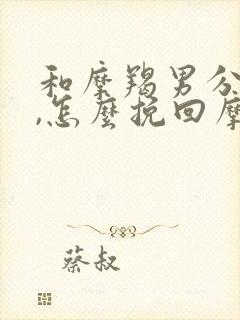 和摩羯男分
,怎麼挽回摩
蔡叔